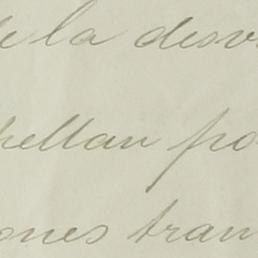 de la desv
pellan po
ones tran